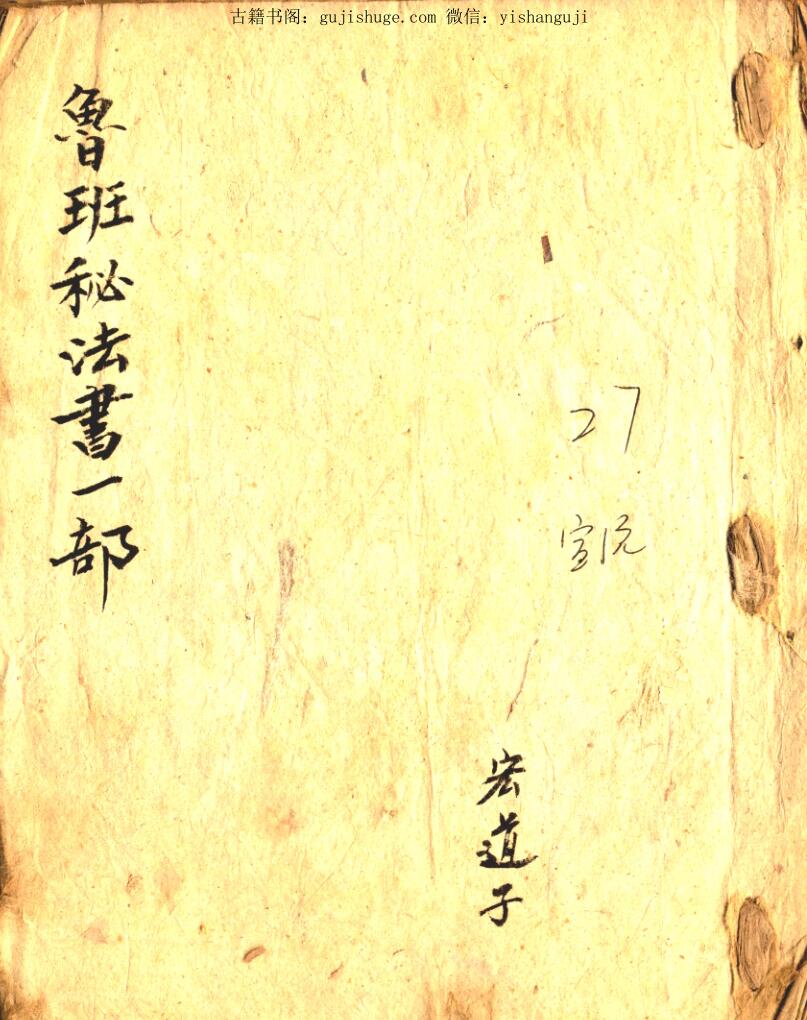 古籍书阁：gujishuge.com 微信：yishanguji
魯班秘法書一部
27
宏道子